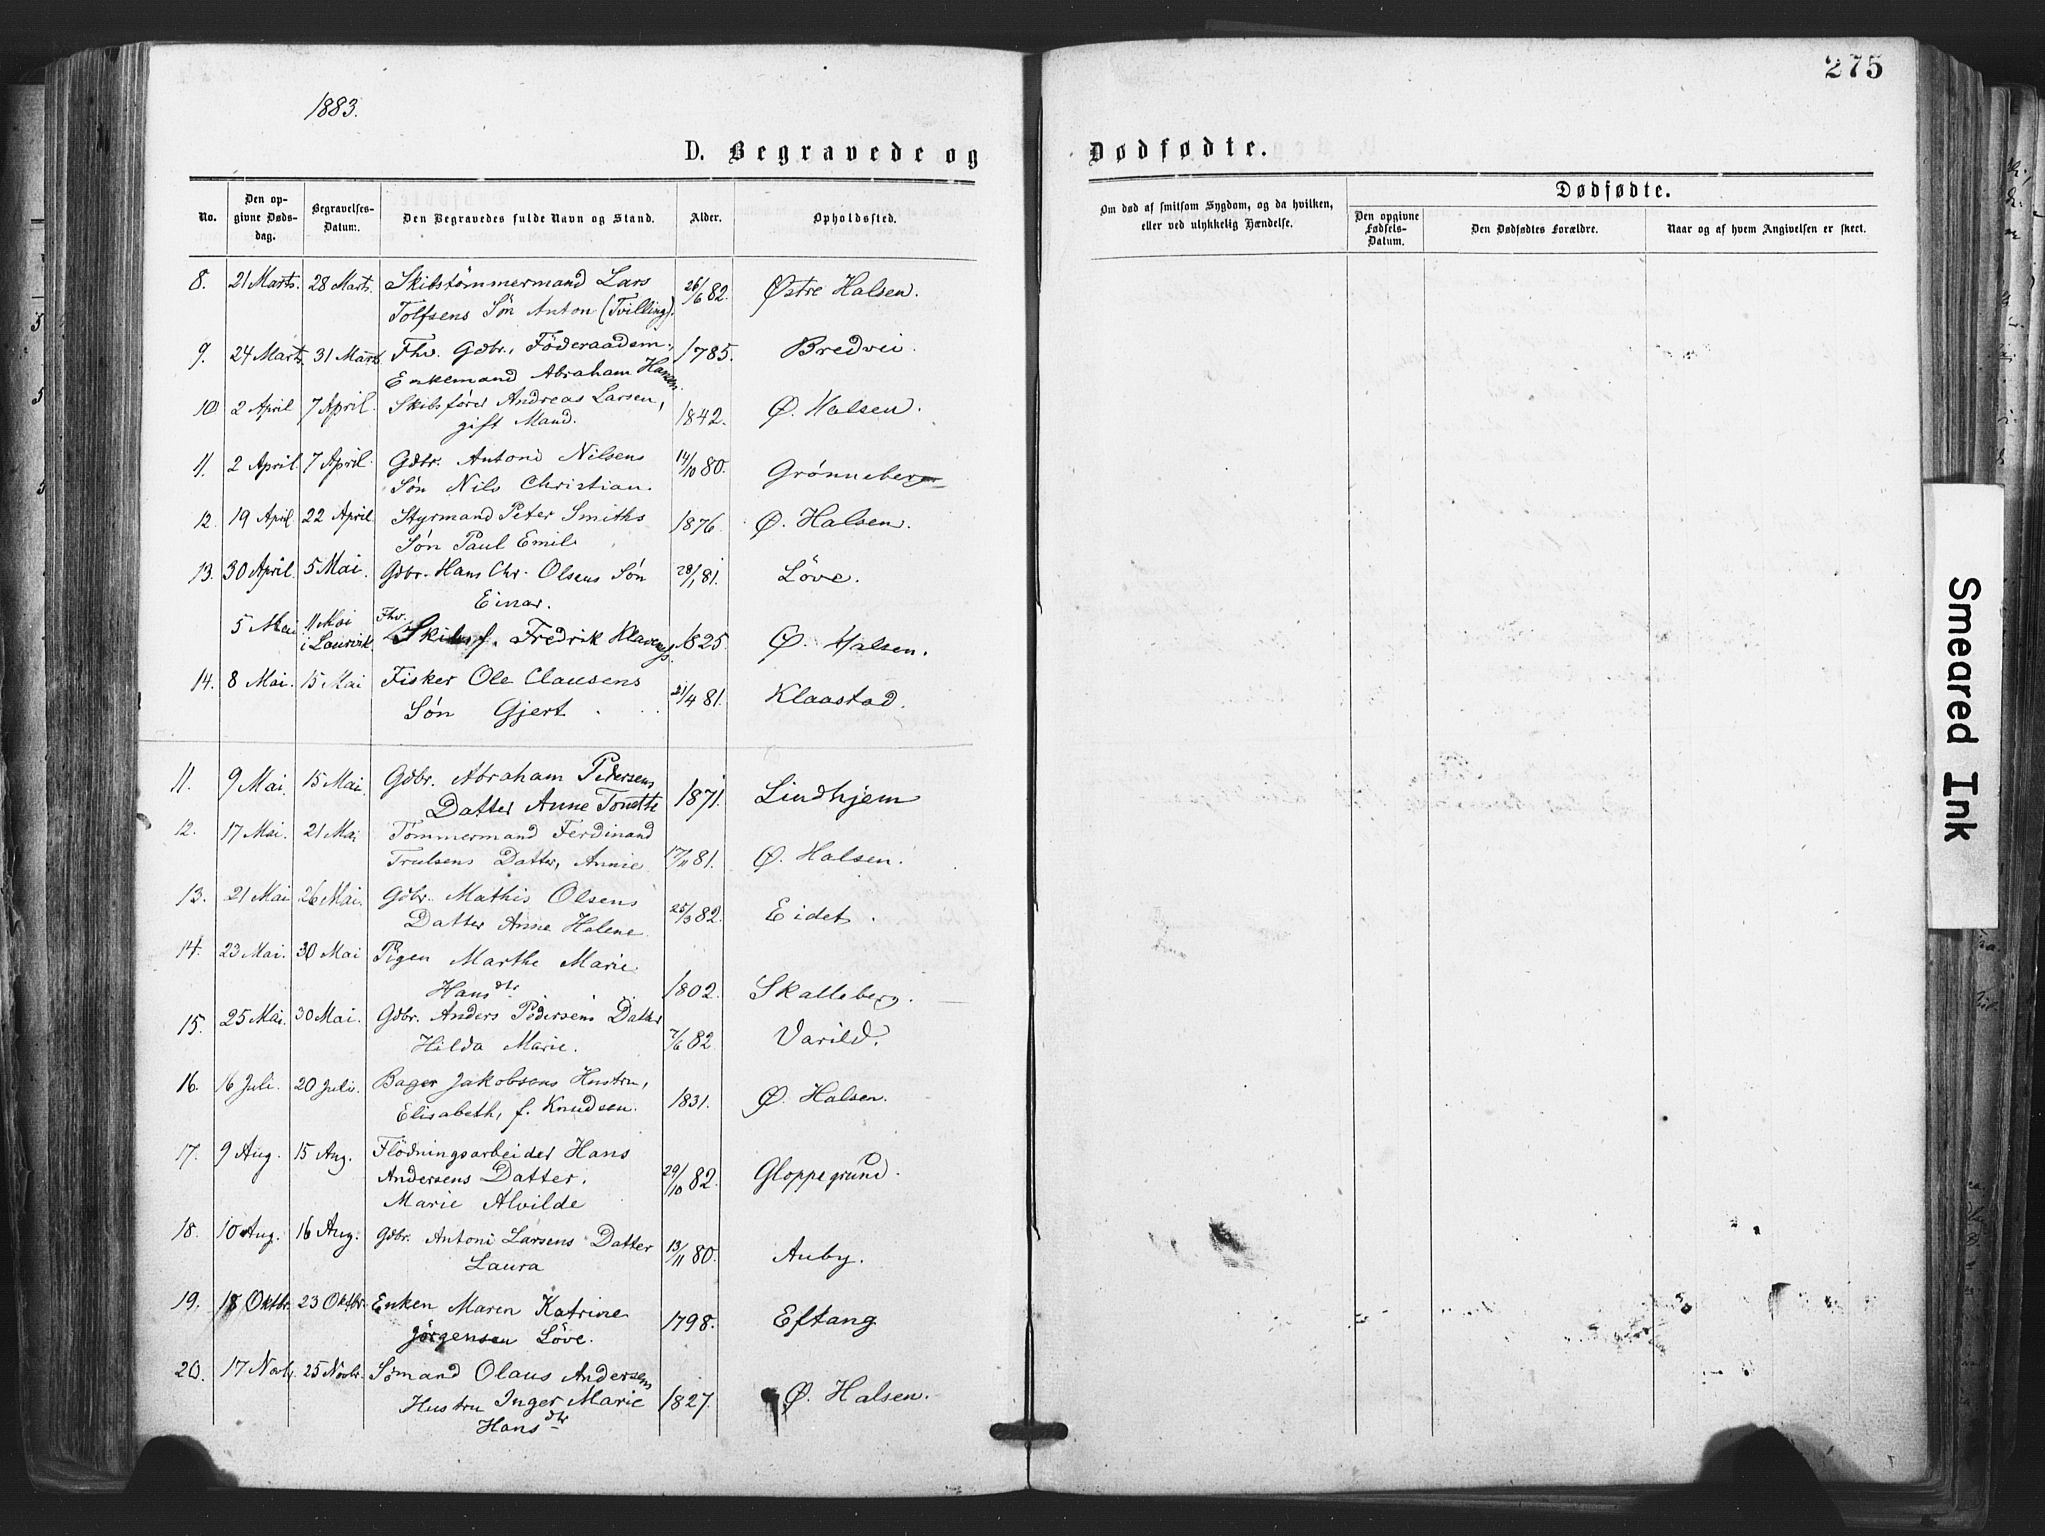 275
1883.
D. Begravede og Dødfødte.
No. Den opgivne Dødsdag. Begravelses-Datum. Den Begravedes fulde Navn og Stand. Alder. Opholdssted.
Om død af smitsom Sygdom, og da hvilken, eller ved ulykkelig Hændelse.
Dødfødte.
Den opgivne Fødsels-Datum. Den Dødfødtes Forældre. Naar og af hvem Angivelsen er skeet.
8. 21 Marts. 28 Marts. Skibstømmermand Lars 26/6 82. Østre Halsen.
Tolfsens Søn Anton (Tvilling).
9. 24 Marts. 31 Marts Fhv. Gdbr., Föderaadsm., 1785. Bredvei.
Enkemand Abraham Hansen.
10 2 April 7 April. Skibsfører Andreas Larsen, 1842. Ø. Halsen.
gift Mand.
11. 2 April. 7 April. Gdbr. Antoni Nilsens 14/10 80. Grønneberg
Søn Nils Christian.
12. 19 April. 22 April. Styrmand Peter Smiths 1876. Ø. Halsen.
Søn Paul Emil.
13. 30 April. 5 Mai. Gdbr. Hans Chr. Olsens Søn 28/1 81. Löve.
Einar.
5 Mai 11 Mai i Laurvik. Fhv. Skibsf. Fredrik Klavenes. 1825. Ø. Halsen.
14. 8 Mai. 15 Mai Fisker Ole Clausens 21/4 81. Klaastad.
Søn Gjert
11. 9 Mai. 15 Mai. Gdbr. Abraham Pedersens 1871. Lindhjem
Datter Anne Tonette
12. 17 Mai. 21 Mai Tømmermand Ferdinand
Trulsens Datter, Annie 17/11 81. Ø. Halsen.
13. 21 Mai 26 Mai. Gdbr. Mathis Olsens 25/3 82. Eidet.
Datter Anne Helene
14. 23 Mai. 30 Mai Pigen Marthe Marie
Hansdtr. 1802. Skalleberg.
15. 25 Mai. 30 Mai. Gdbr. Anders Pedersens Datter 7/6 82 Varild.
Hilda Marie.
16. 16 Juli. 20 Juli. Bager Jakobsens Hustru, 1831. Ø. Halsen.
Elisabeth, f. Knudsen.
17. 9 Aug. 15 Aug. Flödningsarbeider Hans 29/10 82. Gloppegrund.
Andersens Datter.
Marie Alvilde
18. 10 Aug. 16 Aug. Gdbr. Antoni Larsens Datter 13/11 80. Auby.
Laura
19. 18 Oktbr. 23 Oktbr. Enken Maren Katrine 1798. Eftang
Jørgensen Löve.
20. 17 Novbr. 25 Novbr. Sømand Olaus Andersens 1827. Ø. Halsen.
Hustru Inger Marie
Hansdtr
Smeared Ink